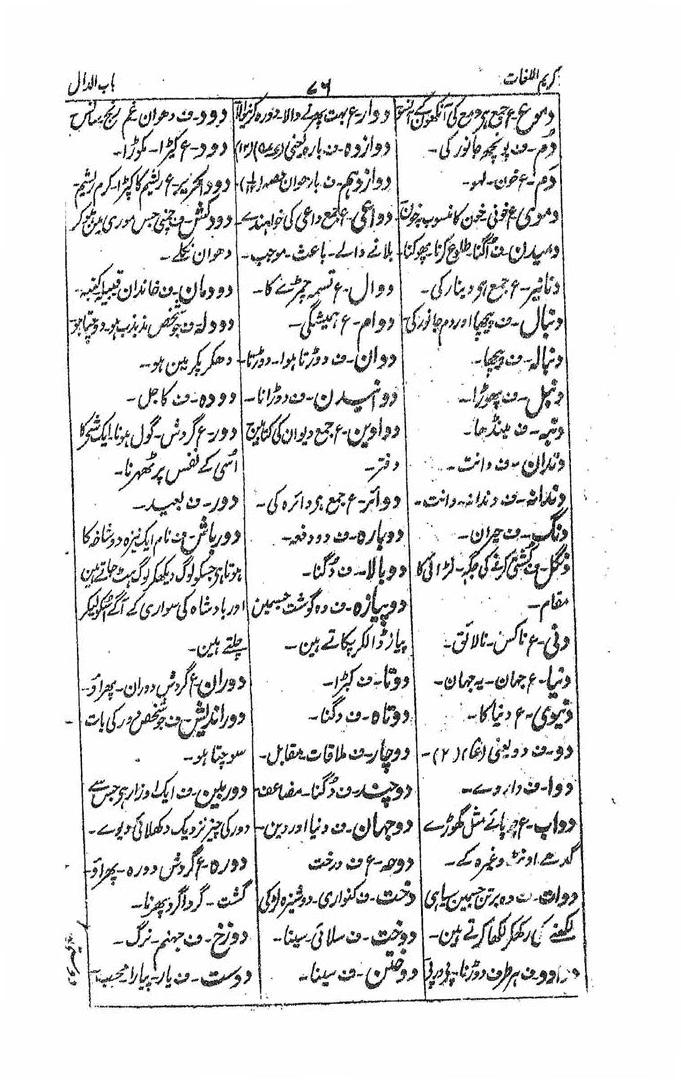 کریم اللغات
۷۶
باب الدال
دموع-ع جمع ہر دمع کی آنکھوں کے آنسو
دُم-ف پونچھ جانور کی-
دَم-ع خون-لہو-
دموی-ع خونی خون کا منسوب بہ خون
دمیدن-ف اُگنا طلوع کرنا پھوکنا
دنانیر-ع جمع ہر دینار کی-
دنبال-ف پیچھا اور دم جانور کی
دنبالہ-ف پیچھا-
دنبل-ف پھوڑا-
دنبہ-ف مینڈھا-
دندان-ف دانت-
دندانہ-ف دندانہ-دانت-
دنگ-ف حیران-
دنگل-ف کشتی کرنے کی جگہ-لڑائی کا
مقام-
دنی-ع ناکس-نالائق-
دنیا-ع جہان-یہ جہان-
دنیوی-ع دنیا کا-
دو-ف دو یعنی (۲)-
دوا-ف دارو-
دواب-ع چوپائے مثل گھوڑے
گدھے اونٹ وغیرہ کے-
دوات-ف وہ برتن جسمین سیاہی
لکھنے کی رکھکر لکھا کرتے ہین-
ف ہر طرف دوڑنا-
دوار-ع بہت پھرنے والا-دورہ کرنیوالا
دوازدہ-ف بارہ یعنی (۱۲)
دوازدہم-ف بارھوان حصہ
دواعی-ع جمع داعی کی خواہندے
بلانے والے-باعث-موجب-
دوال-ع تسمہ چمڑے کا-
دوام-ع ہمیشگی-
دوان-ف دوڑتا ہوا-دوڑتا-
دوانیدن-ف دوڑانا-
دواوین-ع جمع دیوان کی کتابین
دفتر-
دوائر-ع جمع ہر دائرہ کی-
دوبارہ-ف دو دفعہ-
دوبالا-ف دُگنا-
دوپیازہ-ف وہ گوشت جسمین
پیاز ڈالکر پکاتے ہین-
دوتا-ف کبڑا-
دوتاہ-ف دگنا-
دوچار-ف ملاقات-مقابل-
دوچند-ف دُگنا-مضاعف-
دوجہان-ف دنیا اور دین-
دوحہ-ع ف درخت
دخت-ف کنواری-دوشیزہ لڑکی
دوخت-ف سلائی-سینا-
دوختن-ف سینا-
دود-ف دھوان غم رنج سانس
دود-ع کیڑا-مکوڑا-
دودالحریر-ع ریشم کا کیڑا-کرم ریشم-
دودکش-ف چمنی جس موری مین ہوکر
دھوان نکلے-
دودمان-ف خاندان قبیلہ کنبہ-
دودلہ-ف جو شخص مذبذب ہو-دو چتا جو
دھکڑ پکڑ مین ہو-
دودہ-ف کاجل-
دور-ع گردش-گول ہونا-ایک شے کا
اُسی کے نفس پر ٹھہرنا-
دور-ف بعید-
دورباش-ف نام ایک نیزہ دو شاخہ کا
ہوتا ہے جسکو لوگ دیکھکر لوگ ہٹ جاتے ہین
اور بادشاہ کی سواری کے آگے اسکو لیکر
چلتے ہین-
دوران-ع گردش دوران-پھراؤ-
دوراندیش-ف جو شخص دور کی بات
سوچتا ہو-
دوربین-ف ایک اوزار ہے جس سے
دور کی چیز نزدیک دکھلائی دیوے-
دورہ-ع گردش دورہ-پھراؤ-
گشت-گرداگرد پھرنا-
دوزخ-ف جہنم-نرگ-
دوست-ف یار-پیارا-محب-